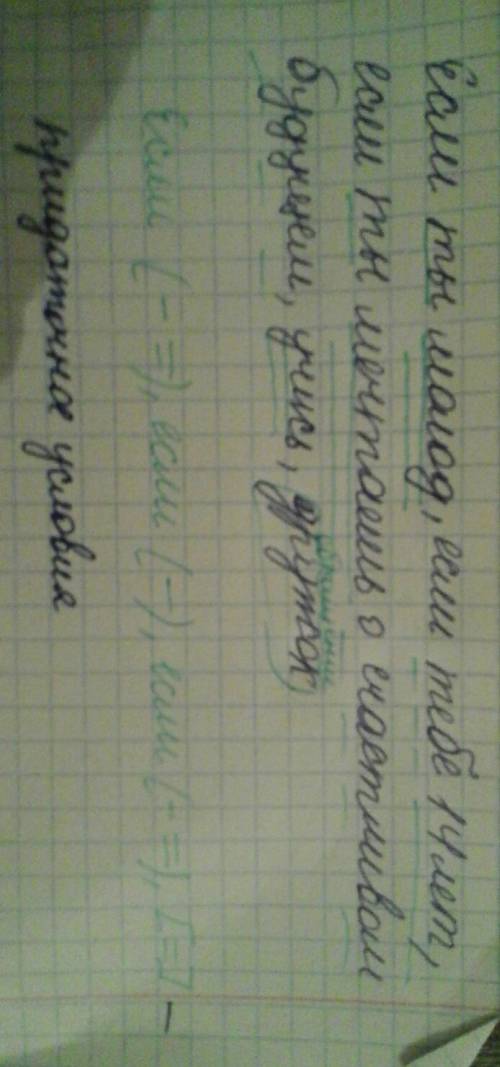 Если ты молод, если тебе 14 лет,
если ты мечтаешь о счастливом
будущем, учись, дружок
обращение
Если (- =), если (-), если (- =), [=] -
придаточное условия